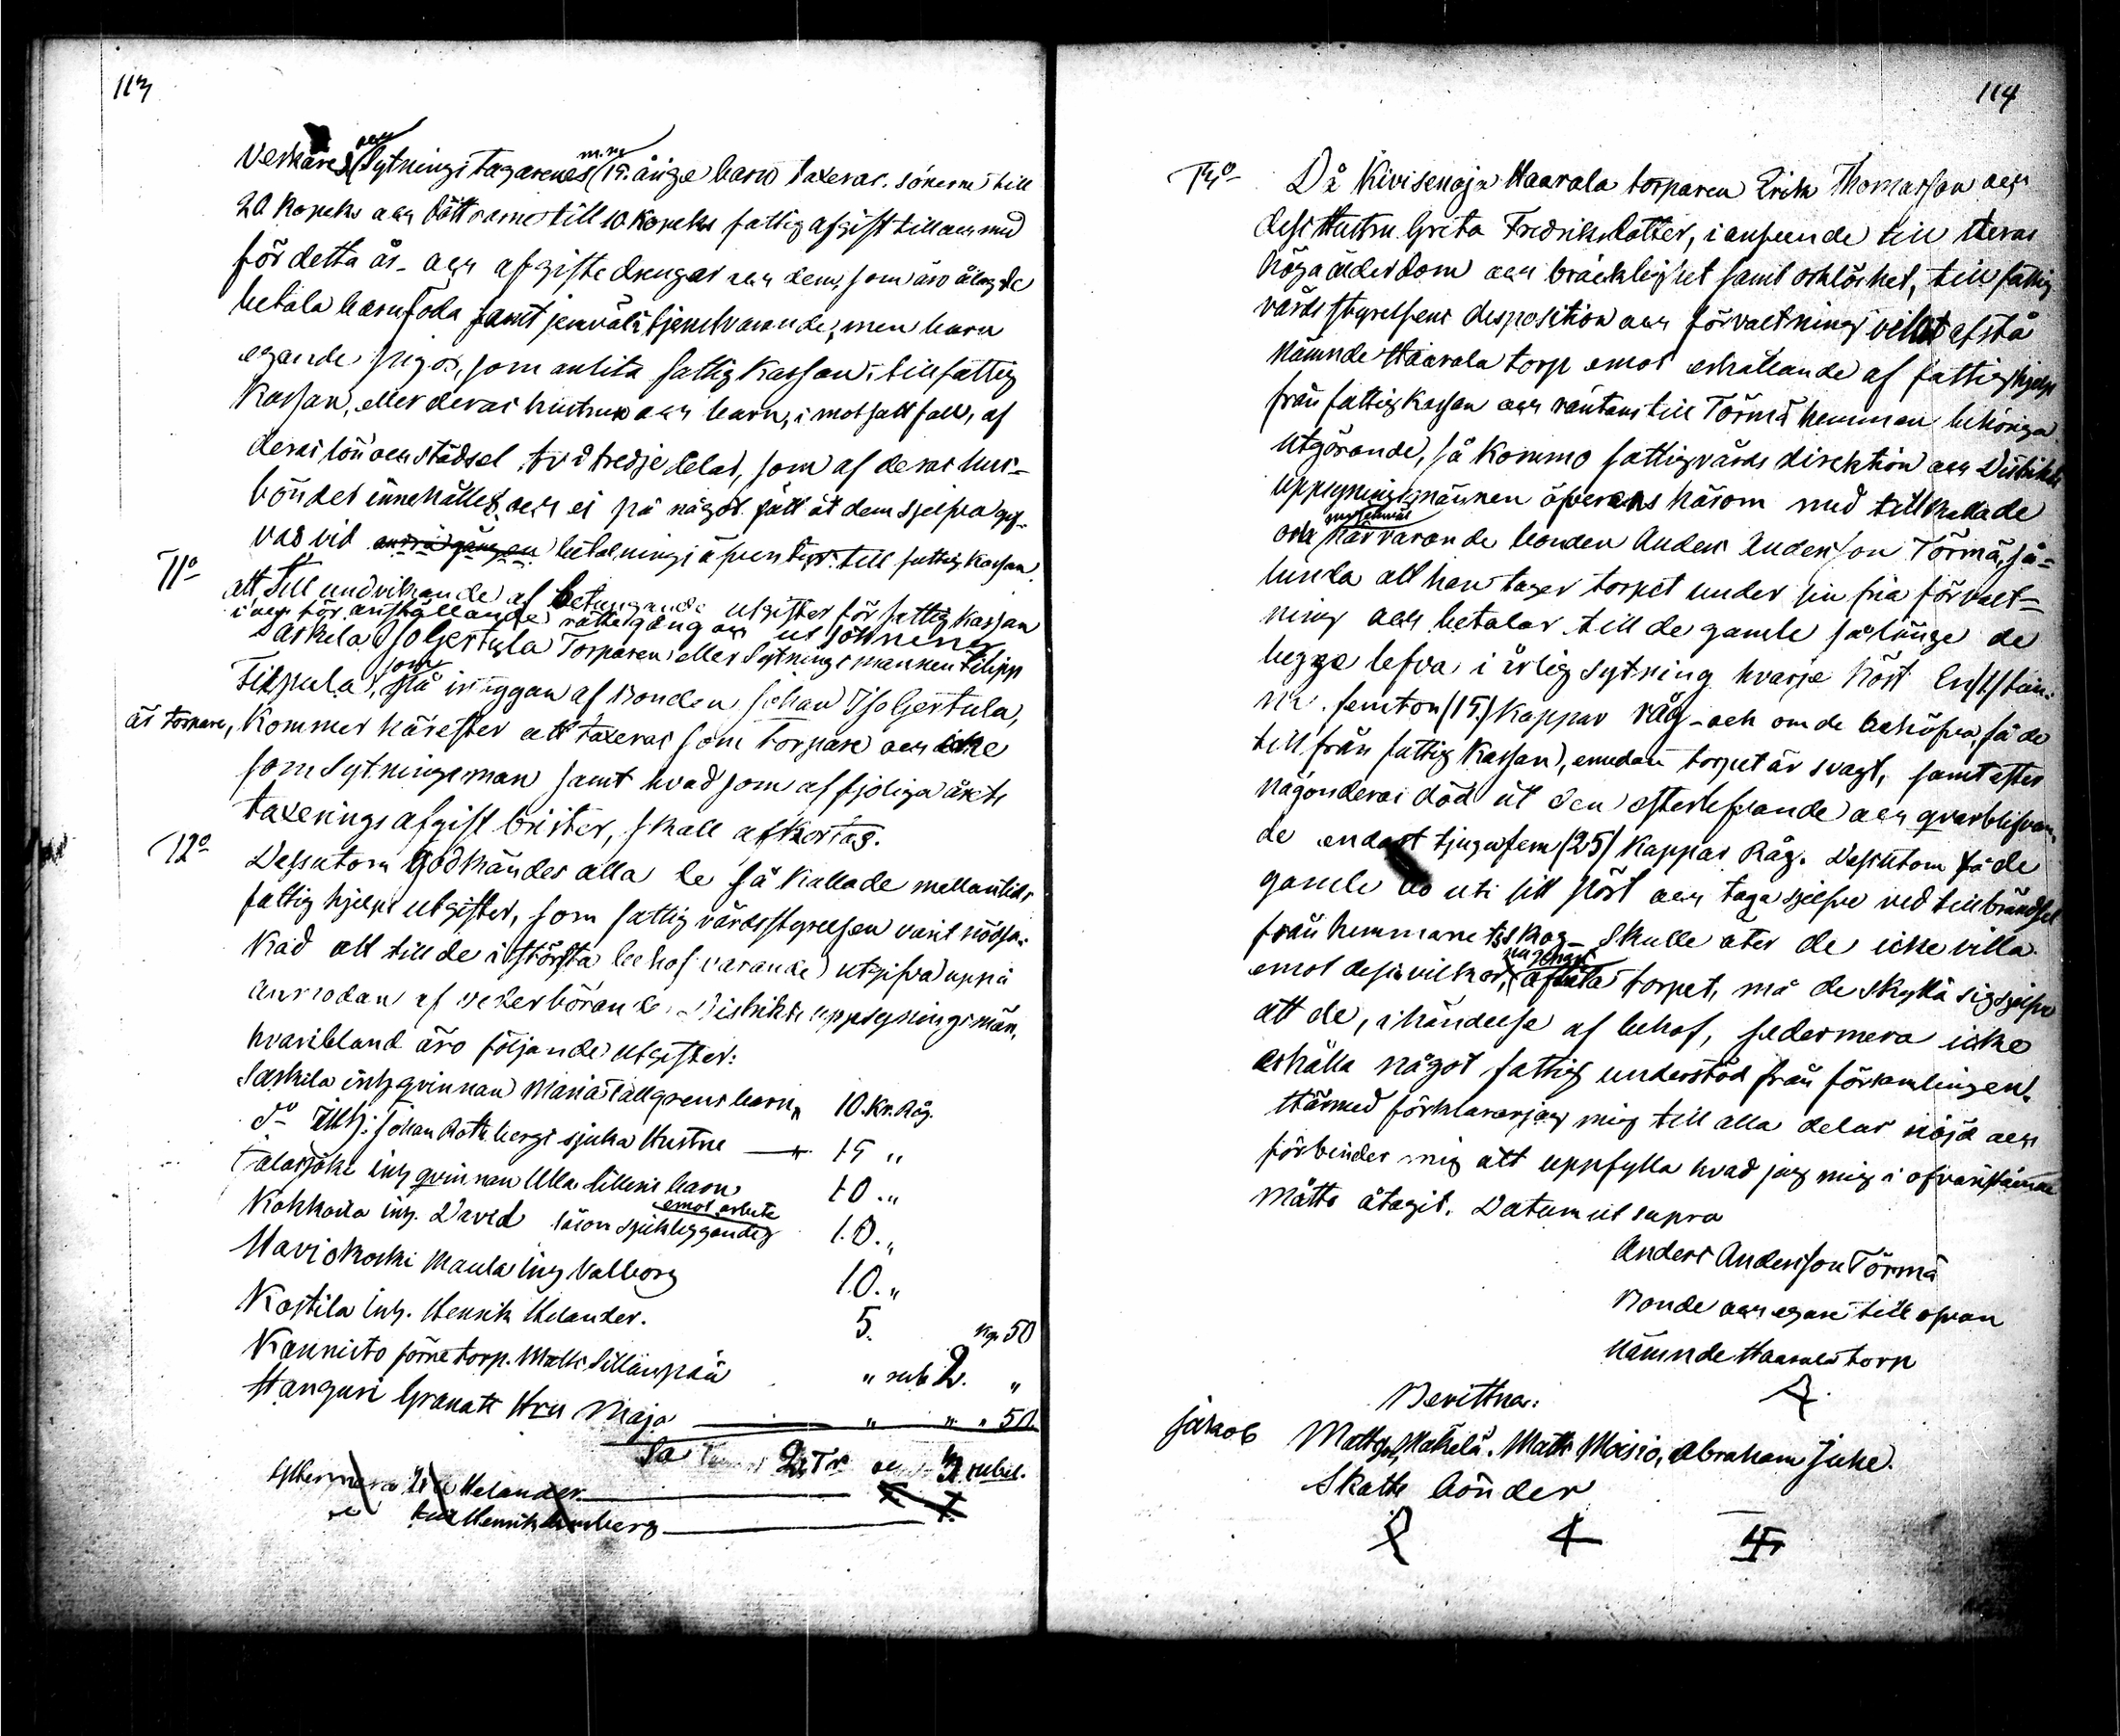 113
och m. m.
Verkares Sytningstagarenes 15. årige barn taxeras. sönerne till
20 Kopeks och döttrarne till 10 Kopeks fattig afgift till och med
för detta år – och afgifte drengar och dem, som äro ålagde
betala barnföda samt jemväl i tjenst varande, men barn
egande pigor, som anlita fattig Kassan, till fattig
Kassan, eller deras hustrur och barn, i motsatt fall, af
deras lön och städsel två tredje delar, som af deras hus-
bönder innehålles och ej på något sätt åt dem sjelfva gif-
vas vid betalnings äfventyr till fattig Kassan.
11º att till undvikande af betungande utgifter för fattig Kassan
i och för anställande rättegång och utsökning
Saskela Isolgertula Torparen eller Sytningsmannen Filipp
Filpula, som på inryggan af Bonden Johan Isolgertula,
är torpare, Kommer härefter att taxeras som Torpare och icke
som Sytningsman samt hvad som af fjoliga årets
taxerings afgift brister, skall afkortas.
12º Dessutom godkändes alla de så kallade mellantids
fattig hjelps utgifter, som fattigvårdsstyrelsen varit nödsa-
kad att till de i största behof varande utgifva uppå
anrodan af vederbörande Distrikts uppsyningsmän,
hvaribland äro följande utgifter:
Saskila inh. qvinnan Maria Tallgrens barn „ 10. Kr. Råg.
dº Inh: Johan Rothbergs sjuka Hustru — 15 „
Jalasjoki inh qvinnan Ulla Silléns barn 10. „
emot arbete
Kokkoila inh. David sjukliggande 10. „
Harjokoski Maula inh Valborg 10. „
Kostila Inh. Henrik Helander. 5. kop 50
Kannisto förre torp. Matts Sillanpää „ rub 2. „
Hanguri Granatt Hru Maja „ „ „ 50.
Sa 2 Tr och 3 rubel.
Helander
Henrik
114
13º Då Kivisenoja Haarala torparen Erik Thomasson och
dess Hustru Greta Fredriksdotter, i anseende till deras
höga ålderdom och bräcklighet samt orklöshet, till fattig
vårds styrelsens disposition och förvaltning velat afstå
nämnde Haarala torp emot erhållande af fattighjelp
från fattig Kassan och räntans till Törmä hemman behöriga
utgörande, så Kommo fattigvårds direktion och Distrikts
uppsyningsmännen öfverens härom med tillkallade
och härvarande bonden Anders Andersson Törmä, så-
lunda att han tager torpet under sin fria förvalt-
ning och betalar till de gamle så länge de
begge lefva i årlig sytning hvarje höst En /1/ tun-
na femton /15./ Kappar råg – och om de behöfva, få de
till från fattig Kassan, emedan torpet är svagt, samt efter
någonderas död åt den efterlefvande och qvarblifvan-
de endast tjugufem /25/ Kappar Råg. Dessutom få de
gamle bo uti sitt pört och taga sjelfve ved till brändsel
från hemmanets skog – Skulle åter de icke villa
emot dessa vilkor, afträda torpet, må de skylla sig sjelfve
att de, i händelse af behof, sedermera icke
erhålla något fattig understöd från församlingen.
Härmed förklarar jag mig till alla delar nöjd och
förbinder mig att uppfylla hvad jag mig i ofvanstående
måtto åtagit. Datum ut supra
Anders Andersson Törmä
Bonde och egare till ofvan
nämnde Haarala torp
Bevittna:
Jakob Mattss. Mäkelä. Matts Moisio, Abraham Juke.
Skatte bönder